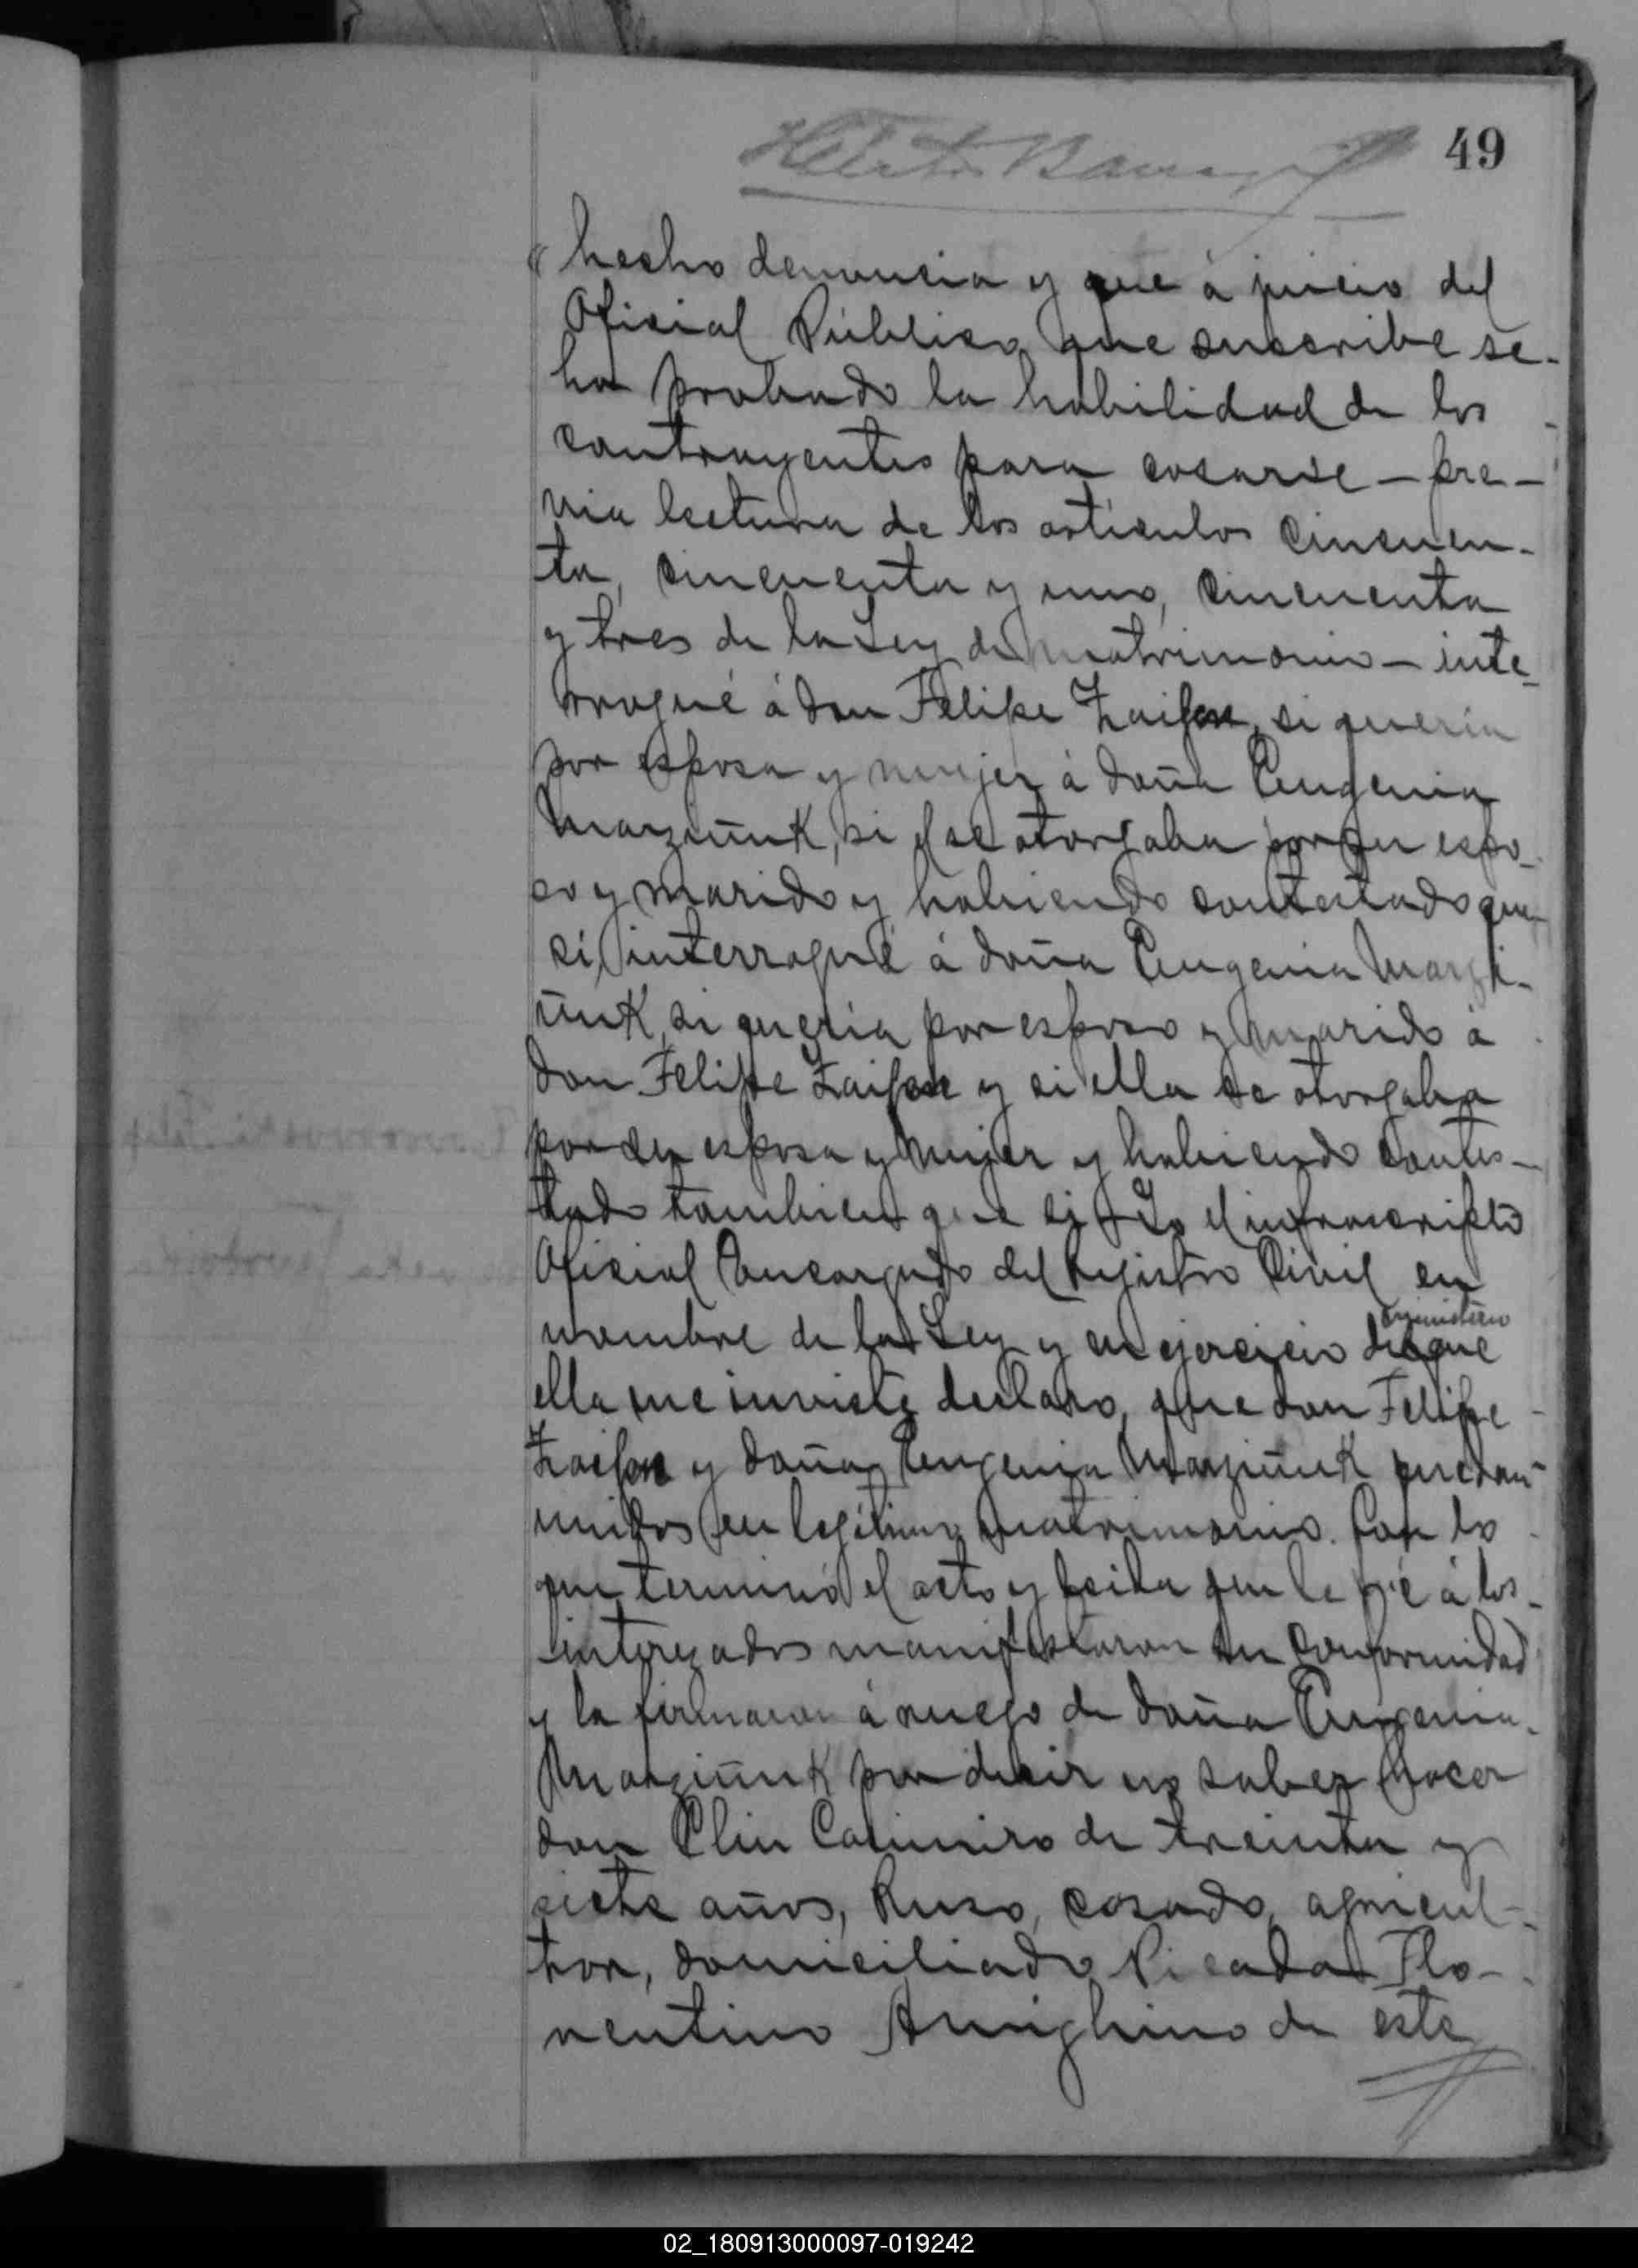 49
hecho denuncia y que á juicio del
Oficial Público que suscribe se
ha probado la habilidad de los
contrayentes para casarse – pre–
via lectura de los artículos cincuen-
ta, cincuenta y uno, cincuenta
y tres de la Ley de matrimonio – inte-
rrogué á don Felipe si queria
por esposa y mujer á doña Eugenia
Marziñuk, si el se otorgaba por su espo-
so y marido y habiendo contestado que
si, interrogué á doña Eugenia Marzi-
ñuk, si queria por esposo y marido á
don Felipe y si ella se otorgaba
por su esposa y mujer y habiendo contes-
tado tambien que si – Yo el infrascripto
Oficial Encargado del Registro Civil en
nombre de la Ley y en ejercicio del ministerio que
ella me inviste declaro, que don Felipe
y doña Eugenia Marziñuk quedan
unidos en legítimo matrimonio. Con lo
que terminó el acto y leida que le fué á los
interezados manifestaron su conformidad
y la firmaron á ruego de doña Eugenia
Marziñuk por decir no saber hacer
don Elin Casimiro de treinta y
siete años, Ruso, casado, agricul-
tor, domiciliado Picada Flo-
rentino Amighino de este
02_180913000097-019242